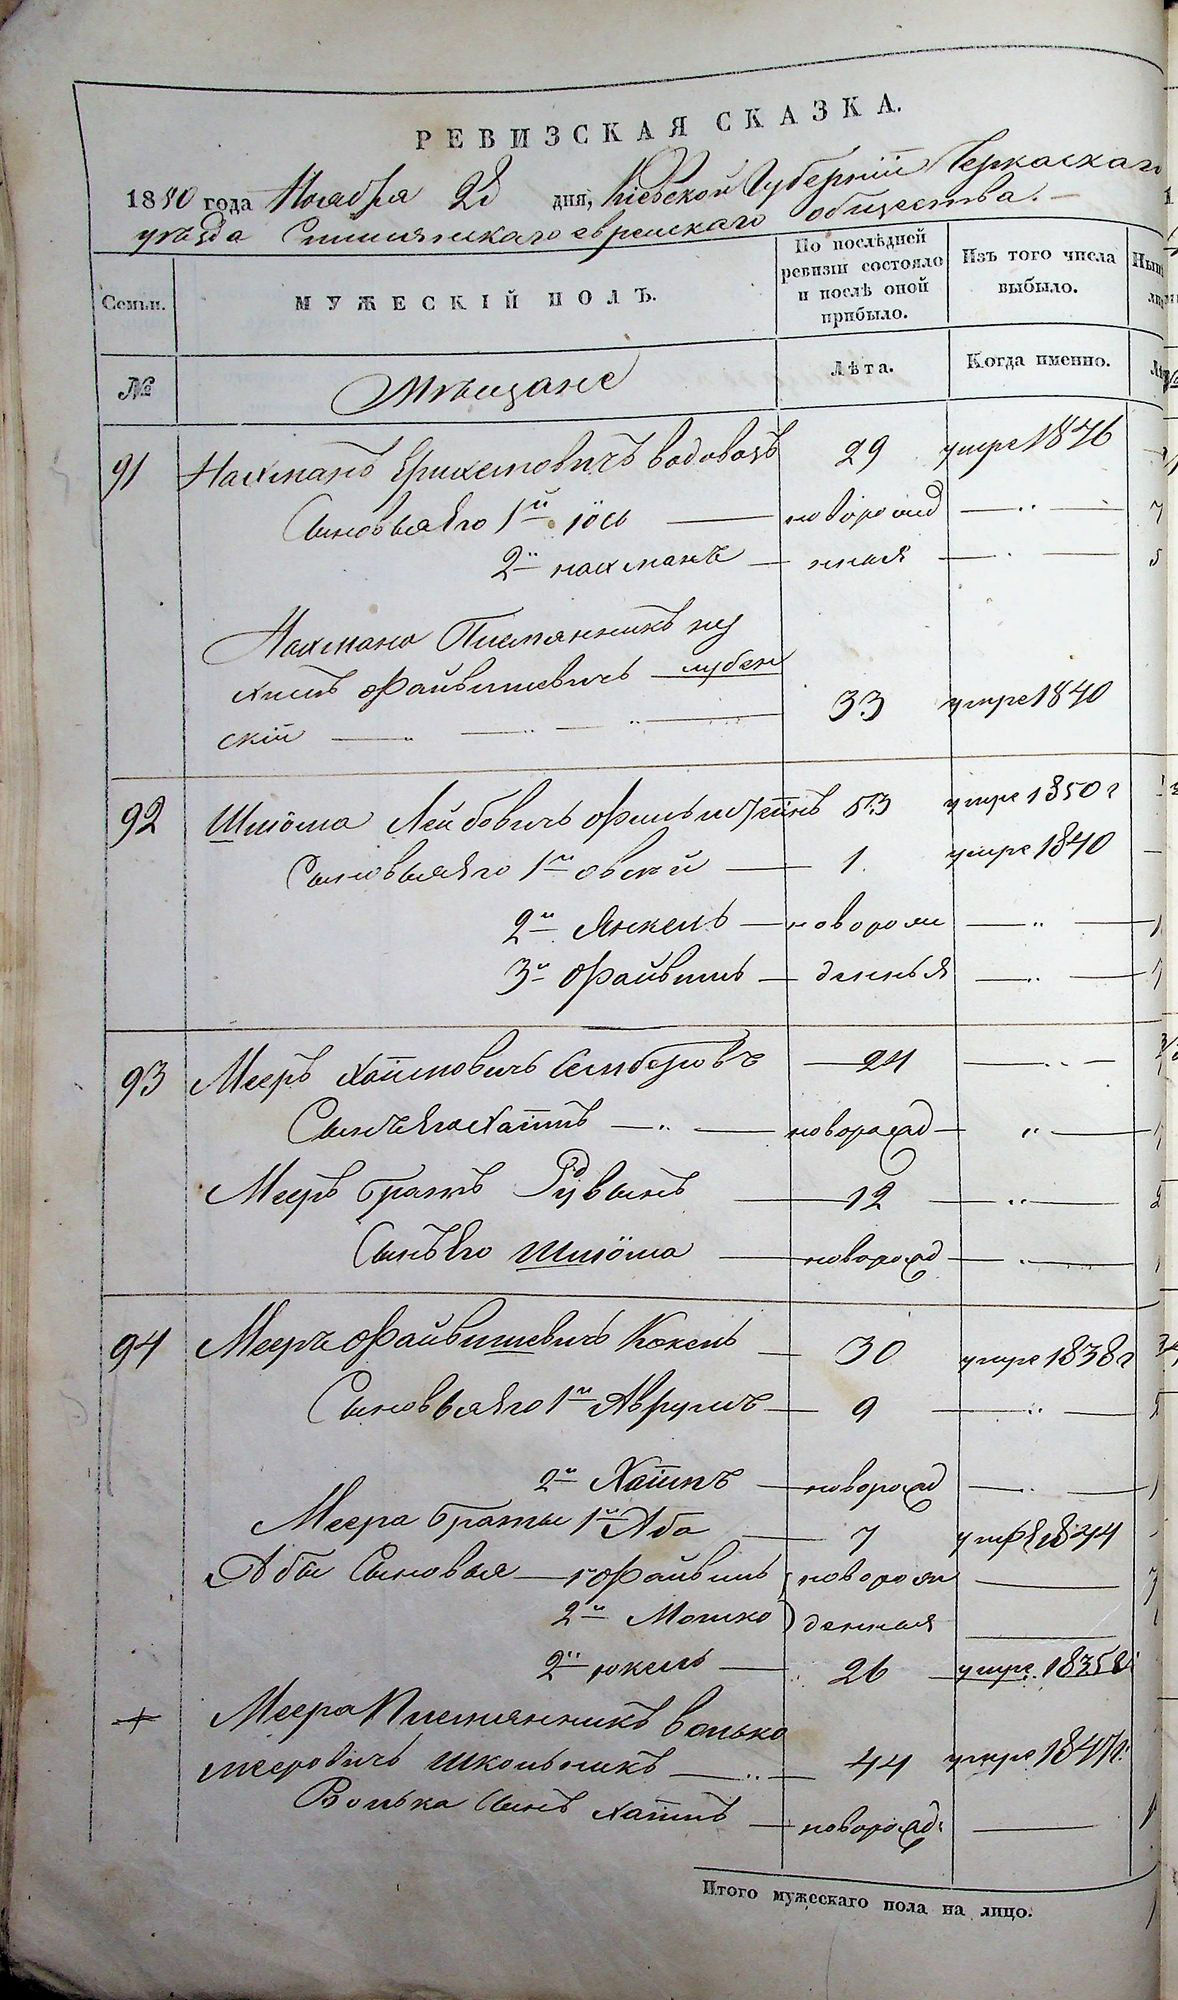 РЕВИЗСКАЯ СКАЗКА.
1850 года Ноября 2д дня, Кіевской Губерніи Черкаскаго
уѣзда Смилянскаго еврейскаго общества.
Семьи. МУЖЕСКІЙ ПОЛЪ. По послѣдней ревизіи состояло и послѣ оной прибыло. Изъ того числа выбыло.
№ Мѣщане Лѣта. Когда именно.
91 Нахманъ водовозъ 29 умре 1846
Сыновья Его 1й Іось новорожд
2й нахманъ нныя
Нахмана Племянникъ пу
хисъ Файвишевичъ лубен
скій 33 умре 1840
92 Шлiома Лейбовичъ Финьштейнъ 53 умре 1850 г
Сыновья Его 1й овсѣй 1 умре 1840
2й Янкель новорож
3й Файвишъ денныя
93 Мееръ Хаимовичъ 24
Сынъ Его Хаимъ новорожд
Мееръ братъ Рувынъ 12
Сынъ Его Шлiома новорожд
94 Мееръ Файвишевичъ Кокель 30 умре 1838 г
Сыновья Его 1й Аврумъ 9
2й Хаимъ новорожд
Меера братья 1й Аба 7 умре 1844
Абы Сыновья 1 Файвишъ новорож
2й Мошко денныя
2й юкель 26 умре 1835 г
Меера Племянникъ Волько
мееровичъ Школьникъ 44 умре
Волька Сынъ Хаимъ новорожд
Итого мужескаго пола на лицо.